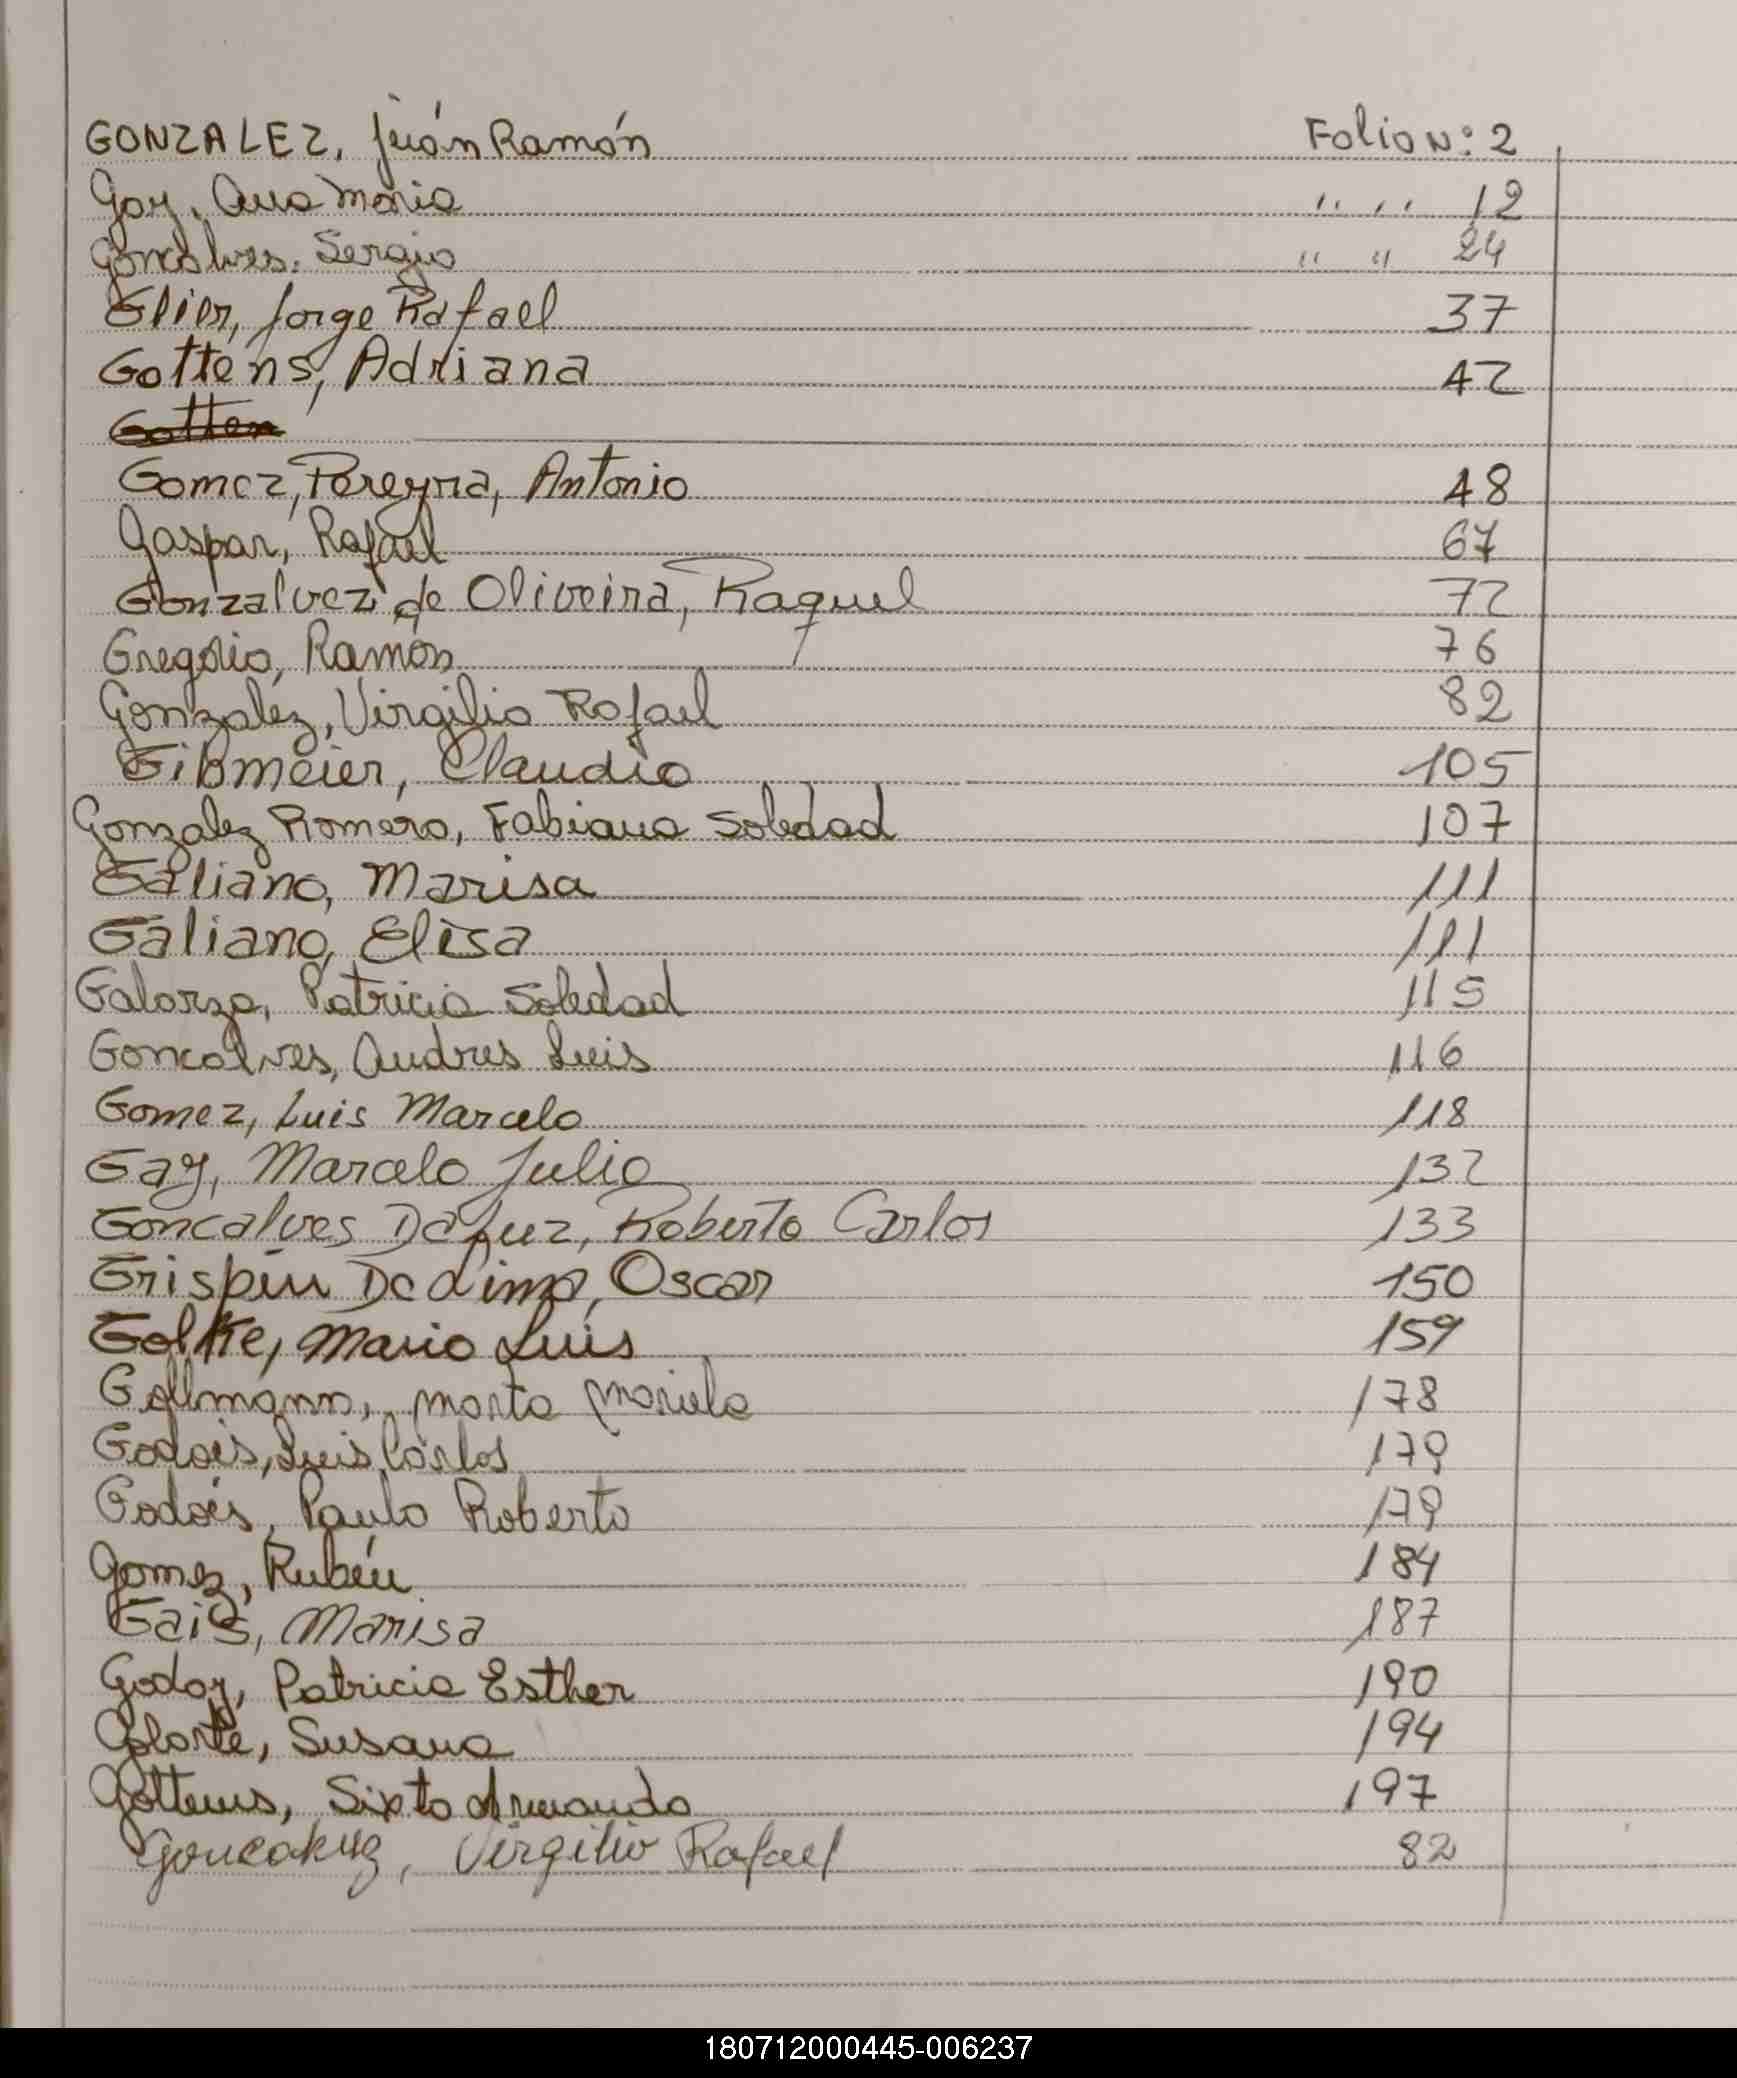 GONZALEZ, Juán Ramón Folio N: 2
Gay, Ana Maria " " 12
Goncalves, Sergio " " 24
Glier, Jorge Rafael 37
Gottens, Adriana 42
Gotten
Gomez, Pereyra, Antonio 48
Gaspar, Rafael 67
Gonzalvez de Oliveira, Raquel 72
Gregorio, Ramón 76
Gonzalez, Virgilio Rafael 82
Gibmeier, Claudio 105
Gonzalez Romero, Fabiana Soledad 107
Galiano, Marisa 111
Galiano, Elisa 111
Galarza, Patricia Soledad 115
Goncalves, Andres Luis 116
Gomez, Luis Marcelo 118
Gay, Marcelo Julio 132
Goncalves Da Luz, Roberto Carlos 133
Grispin De Lima, Oscar 150
Golke, Mario Luis 159
Gollmann, Marta Mariela 178
Godois, Luis Carlos 179
Godois, Paulo Roberto 179
Gomez, Rubén 184
Gais, Marisa 187
Godoy, Patricia Esther 190
Susana 194
Gottems, Sixto Armando 197
Virgilio Rafael 82
180712000445-006237